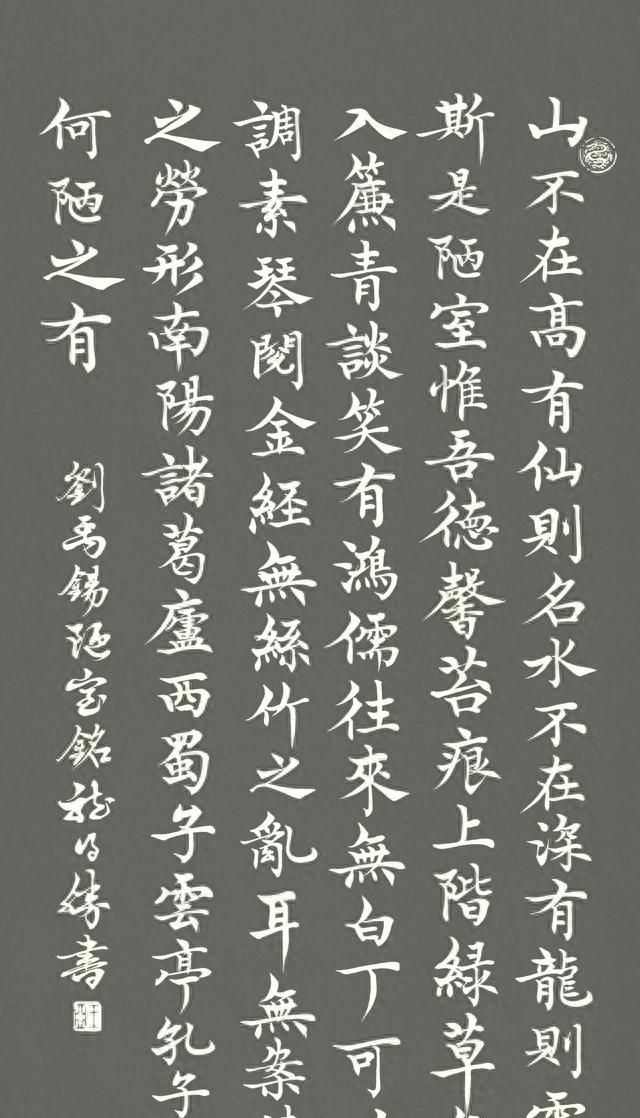 山不在高有仙則名水不在深有龍則
斯是陋室惟吾德馨苔痕上階緑草
入簾青談笑有鴻儒往來無白丁可
調素琴閱金経無絲竹之亂耳無案
之勞形南陽諸葛廬西蜀子雲亭孔子
何陋之有
劉禹錫陋室銘
書